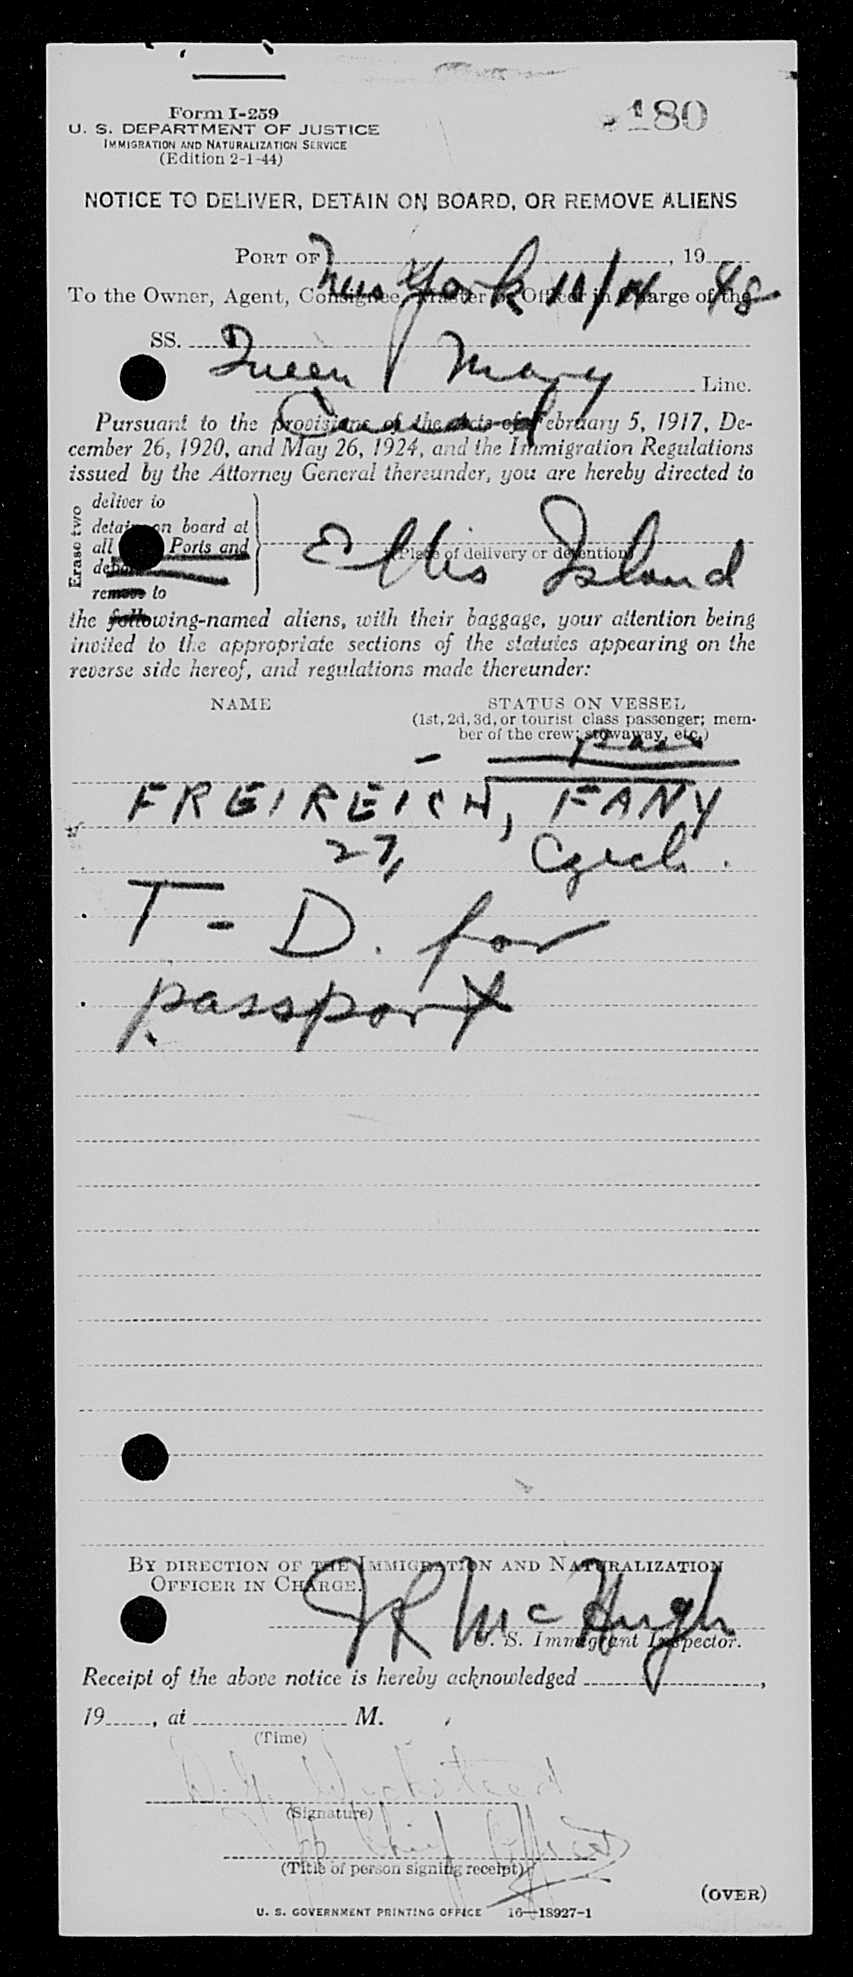 Form I-259
U. S. DEPARTMENT OF JUSTICE
IMMIGRATION AND NATURALIZATION SERVICE
(Edition 2-1-44)
180
NOTICE TO DELIVER, DETAIN ON BOARD, OR REMOVE ALIENS
PORT OF New York, 19 48
To the Owner, Agent, Consignee, Master or Officer in Charge of the
SS. Queen Mary
Cunard Line.
Pursuant to the provisions of the acts of February 5, 1917, De-
cember 26, 1920, and May 26, 1924, and the Immigration Regulations
issued by the Attorney General thereunder, you are hereby directed to
Erase two
deliver to
detain on board at
all Ports and
remove to
Ellis Island
(Place of delivery or detention)
the following-named aliens, with their baggage, your attention being
invited to the appropriate sections of the statutes appearing on the
reverse side hereof, and regulations made thereunder:
NAME STATUS ON VESSEL
(1st, 2d, 3d, or tourist class passenger; mem-
ber of the crew; stowaway, etc.)
pass
FREIREICH, FANY
27, Czech.
T-D. for
passport
BY DIRECTION OF THE IMMIGRATION AND NATURALIZATION
OFFICER IN CHARGE.
JR McHugh
U. S. Immigrant Inspector.
Receipt of the above notice is hereby acknowledged ,
19 , at M.
(Time)
(Signature)
Chief Officer
(Title of person signing receipt)
(OVER)
U. S. GOVERNMENT PRINTING OFFICE 16—18927-1